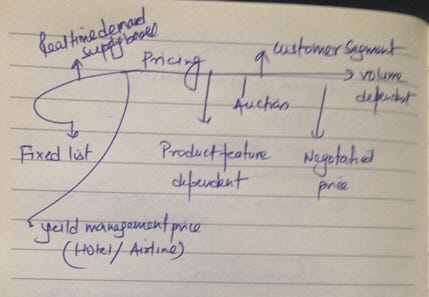 Real time demand
supply based
Pricing
customer segment
volume
dependent
Auction
Fixed list
Product feature
dependent
Negotiated
price
yeild management price
(Hotel / Airline)